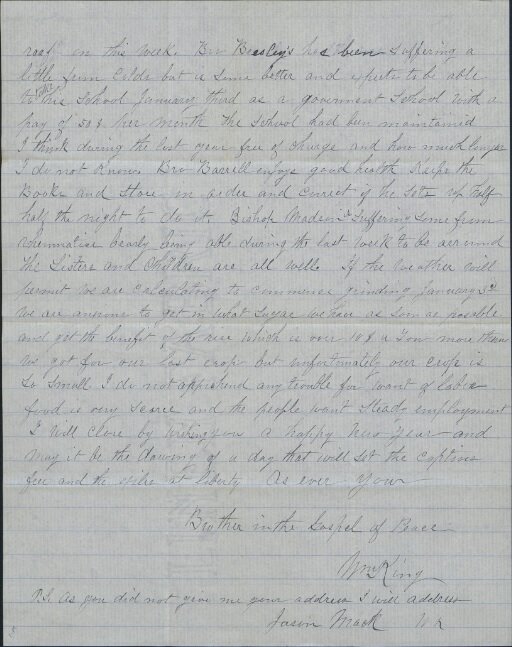 roof in this week. Bro Beesley's has been suffering a
little from Colds but is some better and expects to be able
to take his School January third as a goverment School with a
pay of 50$ per month The School had been maintained
I think during the last year free of charge and how much longer
I do not Know. Bro Barrell enjoys good health Keeps the
Books and Store in order and correct if he sets up half
half the night to do it. Bishop Madsen is Suffering Some from
rhumatism bearly being able during the last week to be arround
The Sisters and Children are all well. If the Weather will
permit we are calculating to commence grinding January 3rd
We are anxious to get in what Sugar we have as soon as posable
and get the benefit of the rise which is over 10$ a Ton more than
we got for our last crop but unfortunately our crop is
So Small. I do not apprehend any trouble for want of labor
food is very Scarce and the people want Steady employment
I will close by wishing you a happy New Year and
may it be the dawning of a day that will set the captives
free and the exiles at liberty As ever Your
Brother in the Gospel of Peace
Wm King
P.S. As you did not give me your address I will address
Jason Mack